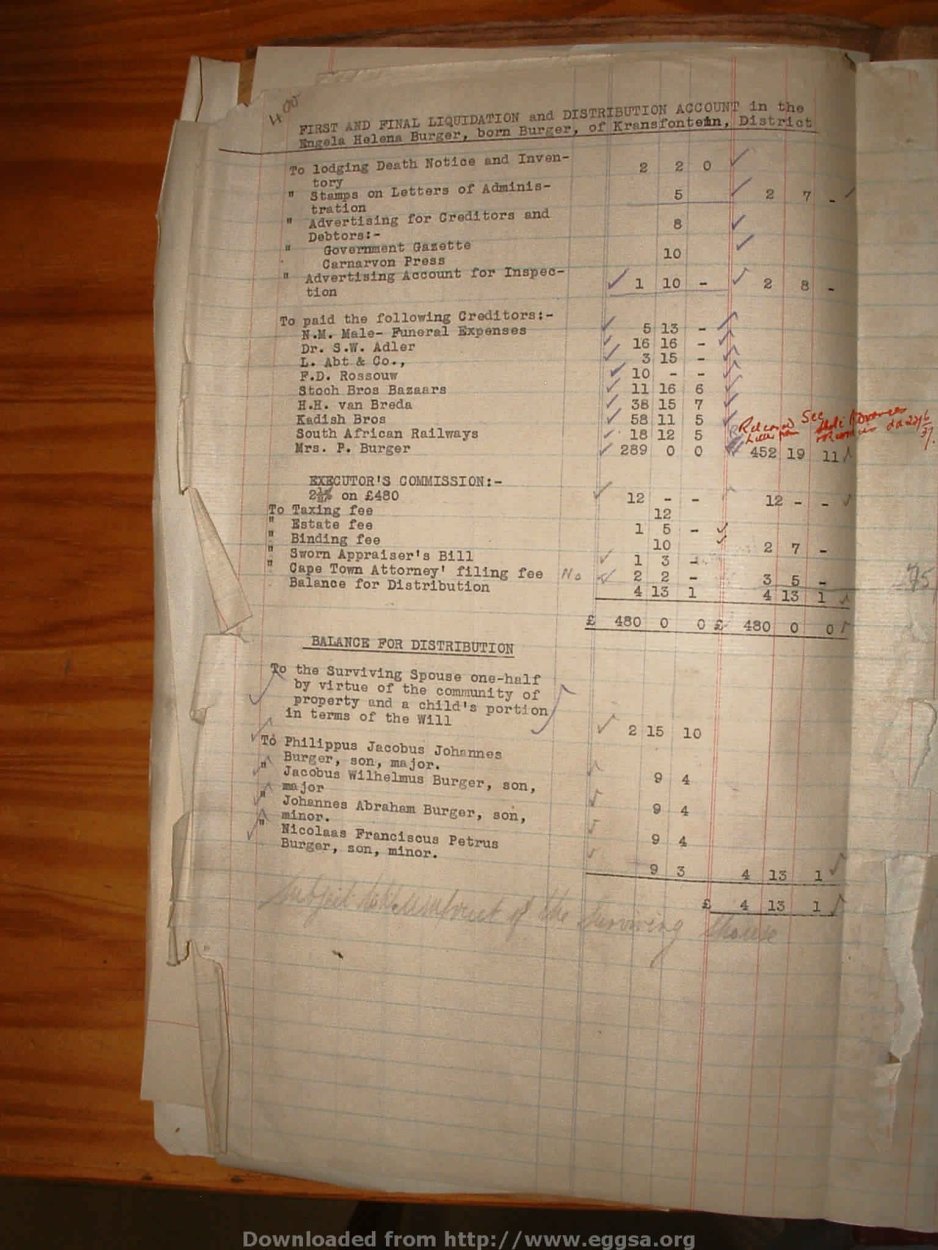 400
FIRST AND FINAL LIQUIDATION and DISTRIBUTION ACCOUNT in the
Engela Helena Burger, born Burger, of Kransfontein, District
To lodging Death Notice and Inven- 2 2 0
tory
" Stamps on Letters of Adminis- 5 2 7 -
tration
" Advertising for Creditors and
Debtors:- 8
" Government Gazette
Carnarvon Press 10
" Advertising Account for Inspec-
tion 1 10 - 2 8 -
To paid the following Creditors:-
N.M. Male- Funeral Expenses 5 13 -
Dr. S.W. Adler 16 16 -
L. Abt & Co., 3 15 -
F.D. Rossouw 10 - -
Stoch Bros Bazaars 11 16 6
H.H. van Breda 38 15 7
Kadish Bros 58 11 5
South African Railways 18 12 5
Mrs. P. Burger 289 0 0 452 19 11
See
EXECUTOR'S COMMISSION:-
2½% on £480 12 - - 12 - -
To Taxing fee 12
" Estate fee 1 5 -
" Binding fee 10 2 7 -
" Sworn Appraiser's Bill 1 3 -
" Cape Town Attorney' filing fee No 2 2 - 3 5 -
Balance for Distribution 4 13 1 4 13 1
£ 480 0 0 £ 480 0 0
BALANCE FOR DISTRIBUTION
To the Surviving Spouse one-half
by virtue of the community of
property and a child's portion
in terms of the Will 2 15 10
To Philippus Jacobus Johannes
Burger, son, major. 9 4
" Jacobus Wilhelmus Burger, son,
major 9 4
" Johannes Abraham Burger, son,
minor. 9 4
" Nicolaas Franciscus Petrus
Burger, son, minor. 9 3 4 13 1
£ 4 13 1
Subject to the usufruct of the Surviving Spouse
Downloaded from http://www.eggsa.org